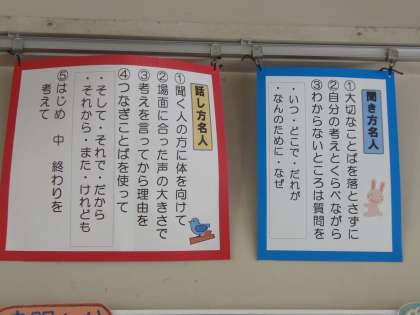 話し方名人
①聞く人の方に体を向けて
②場面に合った声の大きさで
③考えを言ってから理由を
④つなぎことばを使って
・そして・それで・だから
・それから・また・けれども
⑤はじめ 中 終わりを
考えて
聞き方名人
①大切なことばを落とさずに
②自分の考えとくらべながら
③わからないところは質問を
・いつ・どこで・だれが
・なんのために・なぜ